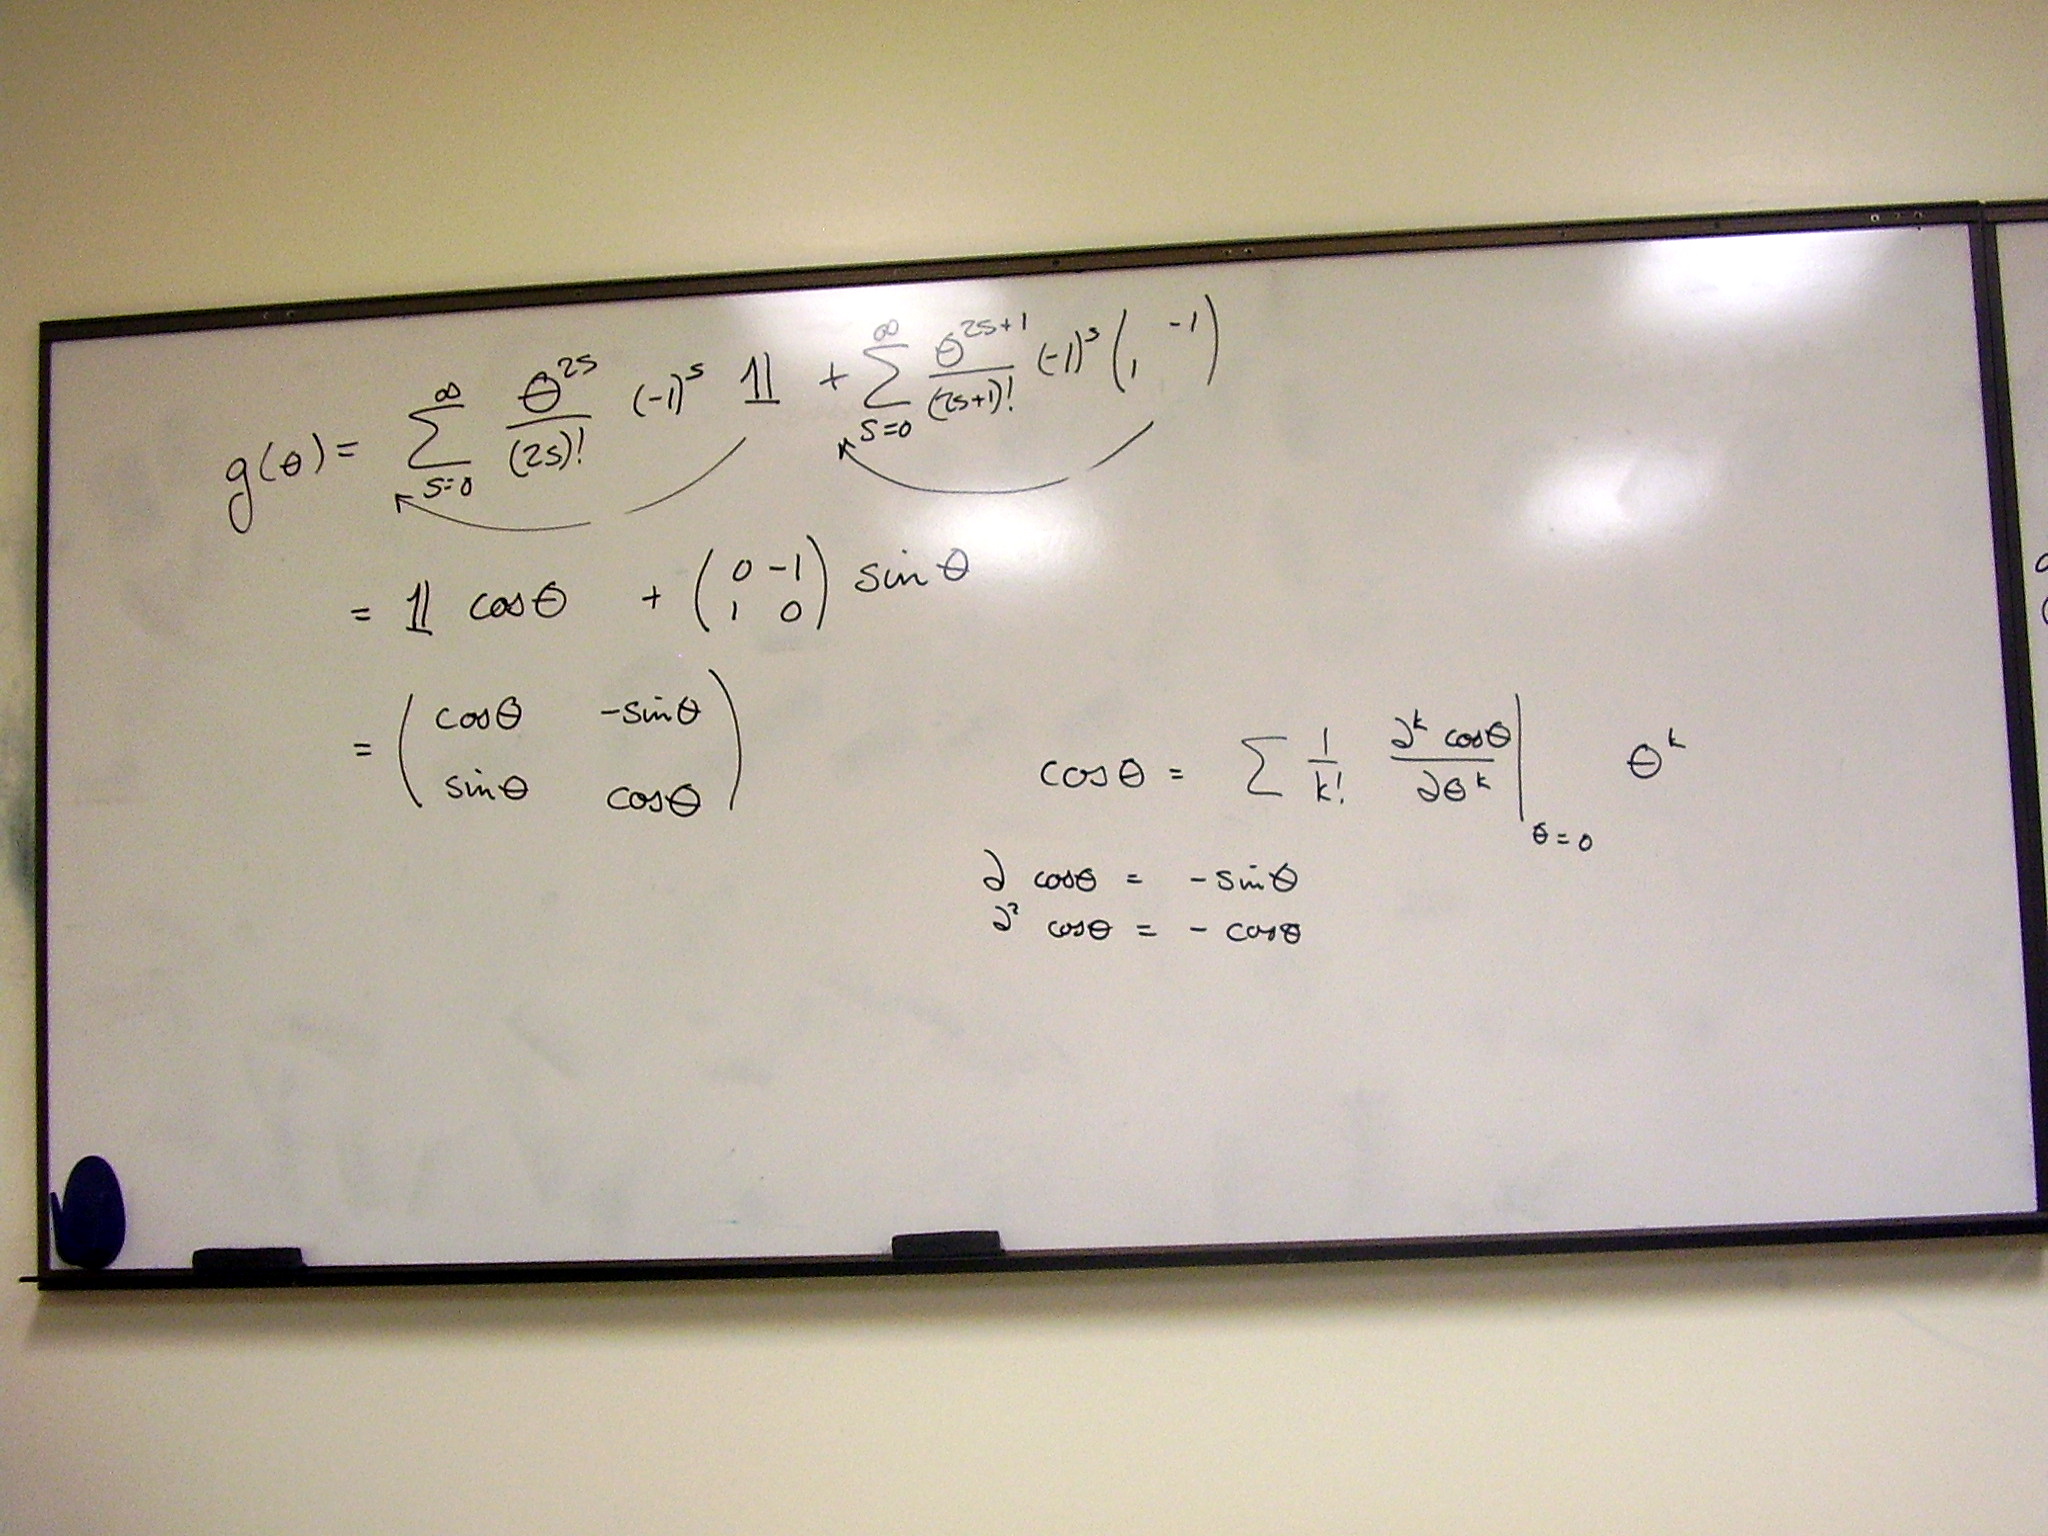 g(θ) = ∑_{s=0}^{∞} θ^{2s}/(2s)! (-1)^s 𝟙 + ∑_{s=0}^{∞} θ^{2s+1}/(2s+1)! (-1)^s ( -1 ; 1 )
= 𝟙 cosθ + ( 0 -1 ; 1 0 ) sinθ
= ( cosθ -sinθ ; sinθ cosθ )
cosθ = ∑ 1/k! ∂^k cosθ/∂θ^k |_{θ=0} θ^k
∂ cosθ = -sinθ
∂² cosθ = - cosθ